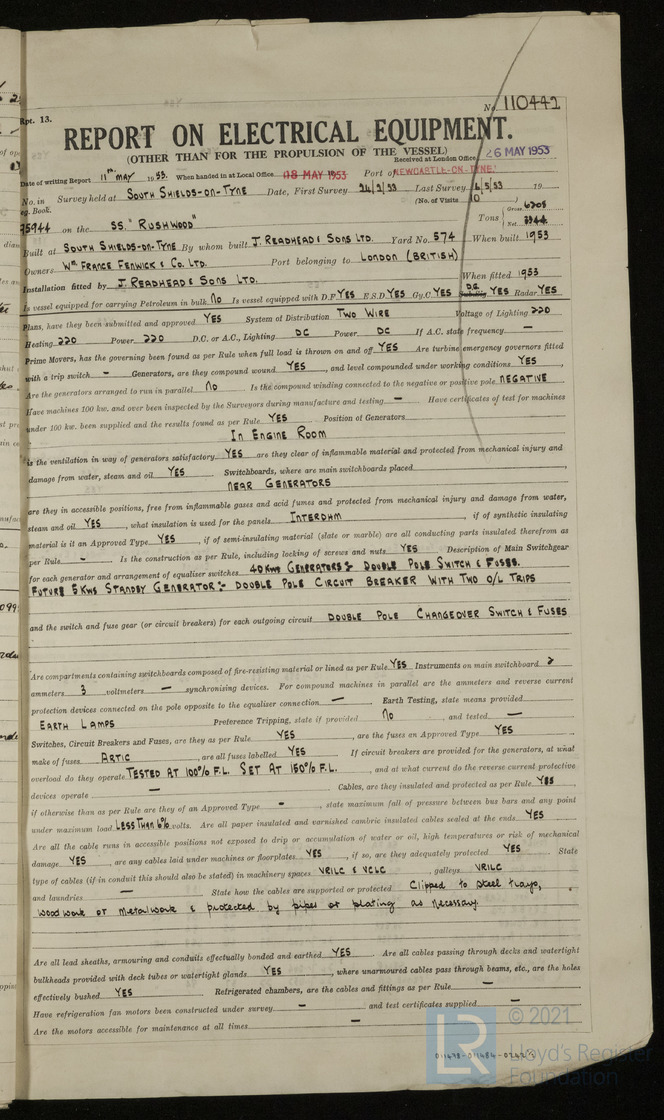 Rpt. 13.
No. 110441
REPORT ON ELECTRICAL EQUIPMENT.
(OTHER THAN FOR THE PROPULSION OF THE VESSEL)
Received at London Office 26 MAY 1953
Date of writing Report 11th MAY 1953. When handed in at Local Office 18 MAY 1953 Port of NEWCASTLE-ON-TYNE.
No. in Survey held at SOUTH SHIELDS-ON-TYNE Date, First Survey 24/2/53 Last Survey 6/5/53 19
Reg. Book. (No. of Visits 10)
75944 on the SS. "RUSHWOOD" Tons Gross Net
Built at SOUTH SHIELDS-ON-TYNE By whom built J. READHEAD & SONS LTD. Yard No. 574 When built 1953
Owners WM FRANCE FENWICK & CO. LTD. Port belonging to LONDON (BRITISH)
Installation fitted by J. READHEAD & SONS LTD. When fitted 1953
Is vessel equipped for carrying Petroleum in bulk NO Is vessel equipped with D.F. YES E.S.D. YES Gy.C. YES Sub.Sig. YES Radar YES
Plans, have they been submitted and approved YES System of Distribution TWO WIRE Voltage of Lighting 220
Heating 220 Power 220 D.C. or A.C., Lighting DC Power DC If A.C. state frequency —
Prime Movers, has the governing been found as per Rule when full load is thrown on and off YES Are turbine emergency governors fitted
with a trip switch — Generators, are they compound wound YES, and level compounded under working conditions YES,
Are the generators arranged to run in parallel NO Is the compound winding connected to the negative or positive pole NEGATIVE
Have machines 100 kw. and over been inspected by the Surveyors during manufacture and testing — Have certificates of test for machines
under 100 kw. been supplied and the results found as per Rule YES Position of Generators
IN ENGINE ROOM
Is the ventilation in way of generators satisfactory YES are they clear of inflammable material and protected from mechanical injury and
damage from water, steam and oil YES Switchboards, where are main switchboards placed
NEAR GENERATORS
are they in accessible positions, free from inflammable gases and acid fumes and protected from mechanical injury and damage from water,
steam and oil YES, what insulation is used for the panels INTERDHM, if of synthetic insulating
material is it an Approved Type YES, if of semi-insulating material (slate or marble) are all conducting parts insulated therefrom as
per Rule - Is the construction as per Rule, including locking of screws and nuts YES Description of Main Switchgear
for each generator and arrangement of equaliser switches 40KWS GENERATORS:- DOUBLE POLE SWITCH & FUSES.
FUTURE 5 KWS STANDBY GENERATOR:- DOUBLE POLE CIRCUIT BREAKER WITH TWO O/L TRIPS
and the switch and fuse gear (or circuit breakers) for each outgoing circuit DOUBLE POLE CHANGEOVER SWITCH & FUSES
Are compartments containing switchboards composed of fire-resisting material or lined as per Rule YES Instruments on main switchboard
ammeters 3 voltmeters — synchronising devices. For compound machines in parallel are the ammeters and reverse current
protection devices connected on the pole opposite to the equaliser connection — Earth Testing, state means provided
EARTH LAMPS Preference Tripping, state if provided NO, and tested —
Switches, Circuit Breakers and Fuses, are they as per Rule YES, are the fuses an Approved Type YES,
make of fuses ARTIC, are all fuses labelled YES If circuit breakers are provided for the generators, at what
overload do they operate TESTED AT 100% F.L. SET AT 150% F.L., and at what current do the reverse current protective
devices operate — Cables, are they insulated and protected as per Rule YES,
if otherwise than as per Rule are they of an Approved Type -, state maximum fall of pressure between bus bars and any point
under maximum load LESS THAN 6% volts. Are all paper insulated and varnished cambric insulated cables sealed at the ends YES
Are all the cable runs in accessible positions not exposed to drip or accumulation of water or oil, high temperatures or risk of mechanical
damage YES, are any cables laid under machines or floorplates YES, if so, are they adequately protected YES State
type of cables (if in conduit this should also be stated) in machinery spaces VRILC & VCLC, galleys VRILC
and laundries — State how the cables are supported or protected Clipped to steel trays,
woodwork or metalwork & protected by pipes or plating as necessary.
Are all lead sheaths, armouring and conduits effectually bonded and earthed YES Are all cables passing through decks and watertight
bulkheads provided with deck tubes or watertight glands YES, where unarmoured cables pass through beams, etc., are the holes
effectively bushed YES Refrigerated chambers, are the cables and fittings as per Rule —
Have refrigeration fan motors been constructed under survey — and test certificates supplied —
Are the motors accessible for maintenance at all times —
© 2021
Lloyd's Register
Foundation